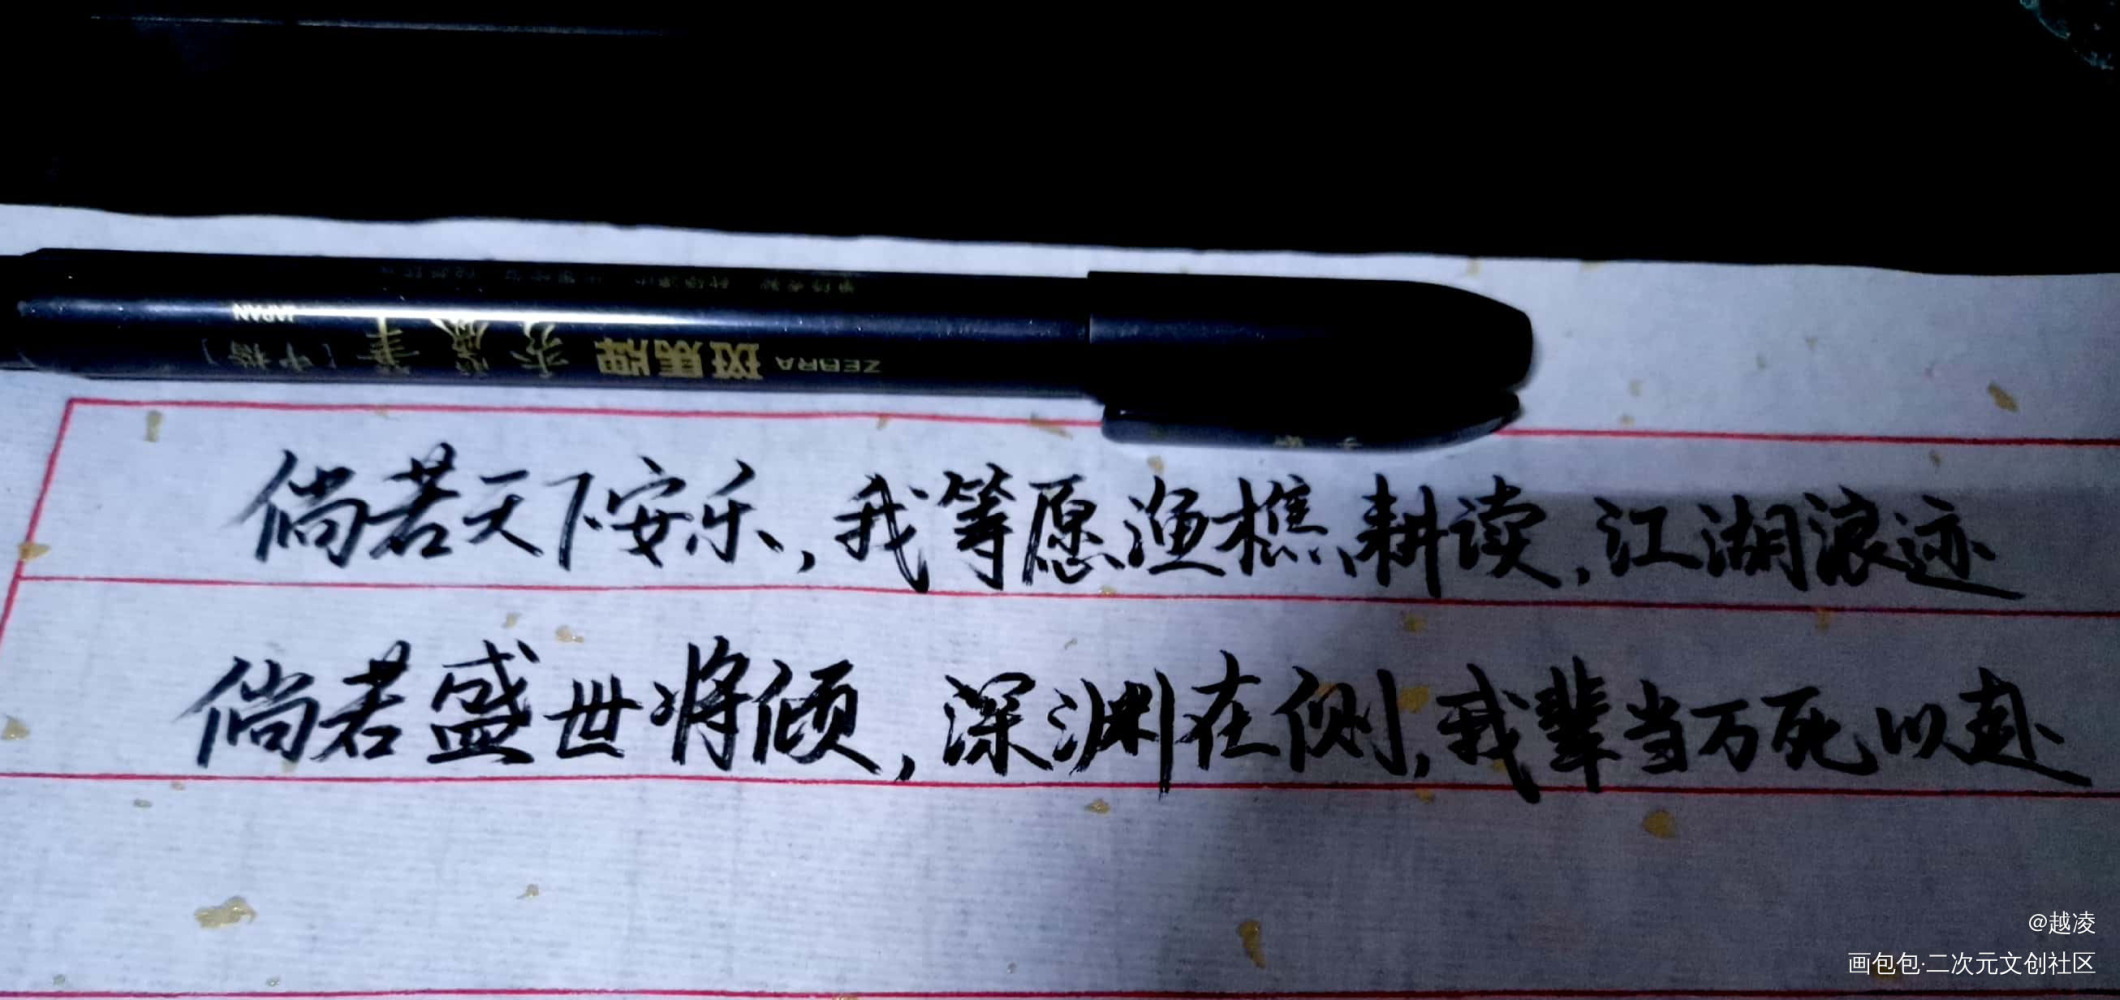 JAPAN
ZEBRA 斑馬牌 秀麗筆 [中楷]
倘若天下安乐,我等愿渔樵、耕读,江湖浪迹
倘若盛世将倾,深渊在侧,我辈当万死以赴
@越凌
画包包·二次元文创社区